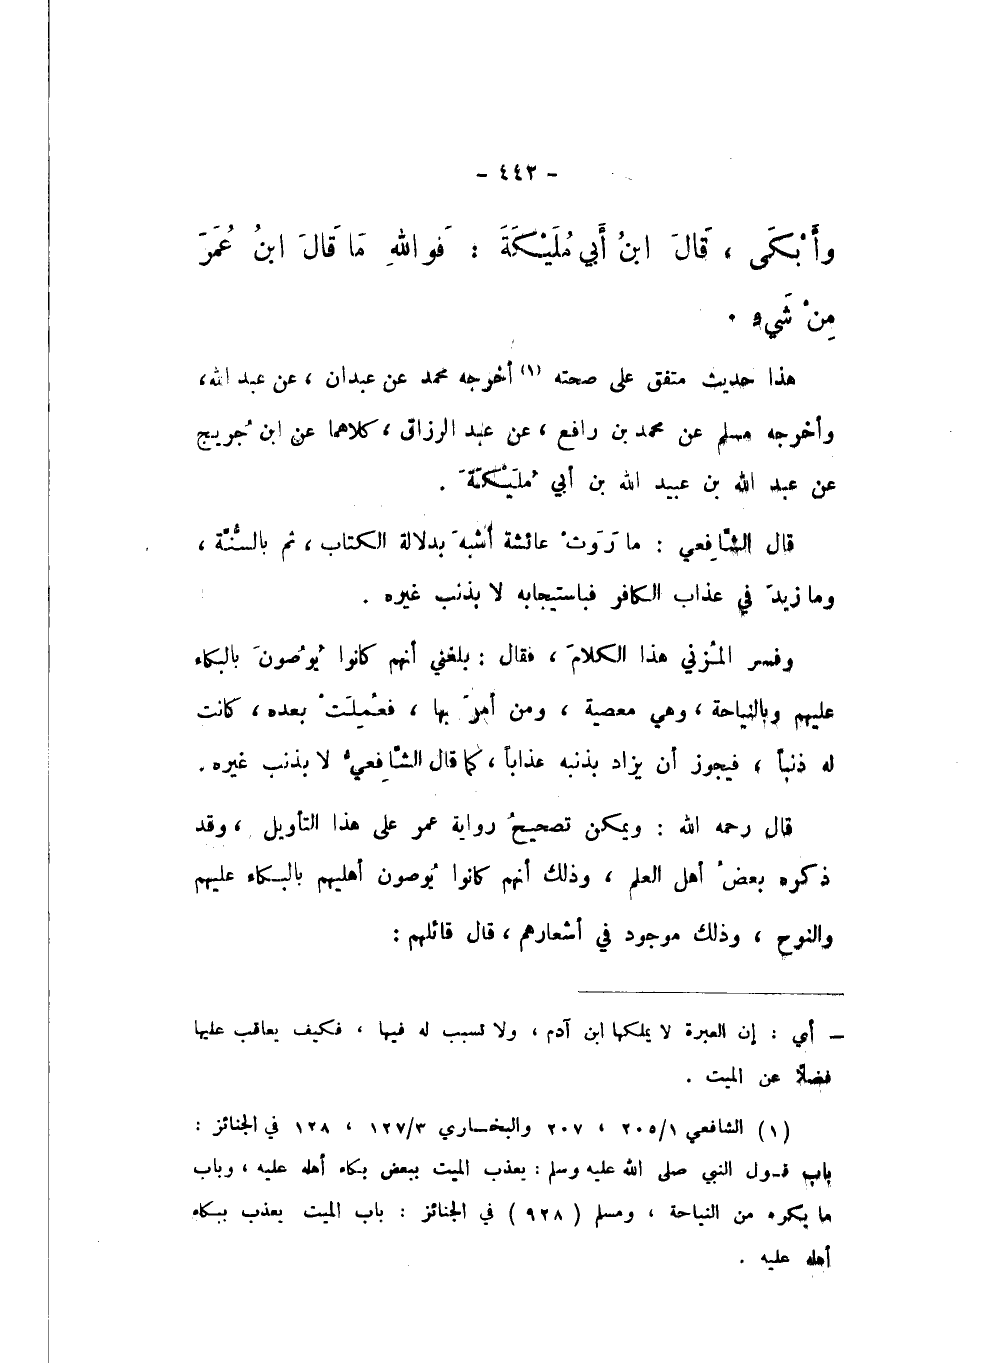 - ٤٤٢ -
وأَبْكَى ، قَالَ ابنُ أَبي مُلَيْكَةَ : فَوالله مَا قَالَ ابنُ عُمَرَ
مِنْ شَيءٍ .
هذا حديث متفق على صحته (١) أخرجه محمد عن عبدان ، عن عبد الله،
وأخرجه مسلم عن محمد بن رافع ، عن عبد الرزاق ، كلاهما عن ابن جُريج
عن عبد الله بن عبيد الله بن أبي مُلَيْكَةَ .
قال الشَّافِعي : ما رَوَتْ عائشة أَشبهَ بدلالة الكتاب ، ثم بالسُّنَّة ،
وما زيدَ في عذاب الكافر فباستيجابه لا بذنب غيره .
وفسر المُزني هذا الكلامَ ، فقال : بلغني أنهم كانوا يُوْصونَ بالبكاء
عليهم وبالنياحة ، وهي معصية ، ومن أمرَ بها ، فعُمِلَتْ بعده ، كانت
له ذنباً ، فيجوز أن يزاد بذنبه عذاباً ، كما قال الشَّافِعيُ لا بذنب غيره .
قال رحمه الله : ويمكن تصحيحُ رواية عمر على هذا التأويل ، وقد
ذكره بعضُ أهل العلم ، وذلك أنهم كانوا يُوصون أهليهم بالبكاء عليهم
والنوح ، وذلك موجود في أشعارهم ، قال قائلهم :
– أي : إن العبرة لا يملكها ابن آدم ، ولا تسبب له فيها ، فكيف يعاقب عليها
فضلًا عن الميت .
(١) الشافعي ٢٠٥/١ ، ٢٠٧ والبخاري ١٢٧/٣ ، ١٢٨ في الجنائز :
باب قول النبي صلى الله عليه وسلم : يعذب الميت ببعض بكاء أهله عليه ، وباب
ما يكره من النياحة ، ومسلم ( ٩٢٨ ) في الجنائز : باب الميت يعذب ببكاء
أهله عليه .